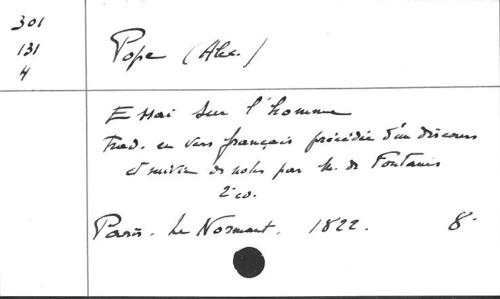 301
131
4
Pope (Alex.)
Essai sur l'homme
Trad. en vers français précédée d'un discours
et suivie de notes par M. de Fontanes
2e éd.
Paris. Le Normant. 1822. 8°.